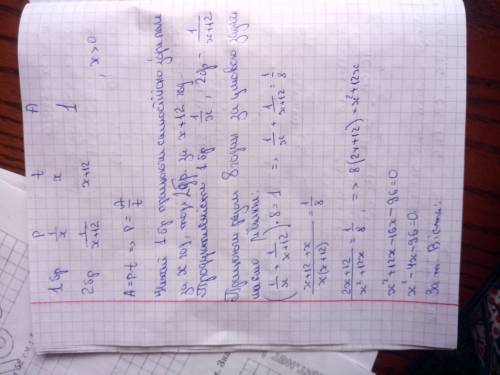 P t A
1 бр 1/x x 1
2 бр 1/x+12 x+12 , x>0
A=P·t => P=A/t
Нехай 1 бр працюючи самостійно
за x год, тоді 2 бр за x+12 год.
Продуктивність 1 бр 1/x, 2 бр - 1/x+12
Працюючи разом 8 годин за умовою
маємо рівняння:
(1/x + 1/x+12)·8=1 => 1/x + 1/x+12 = 1/8
x+12+x/x(x+12) = 1/8
2x+12/x²+12x = 1/8, => 8(2x+12)=x²+12x
x²+12x-16x-96=0
x²-4x-96=0
За т Вієта: